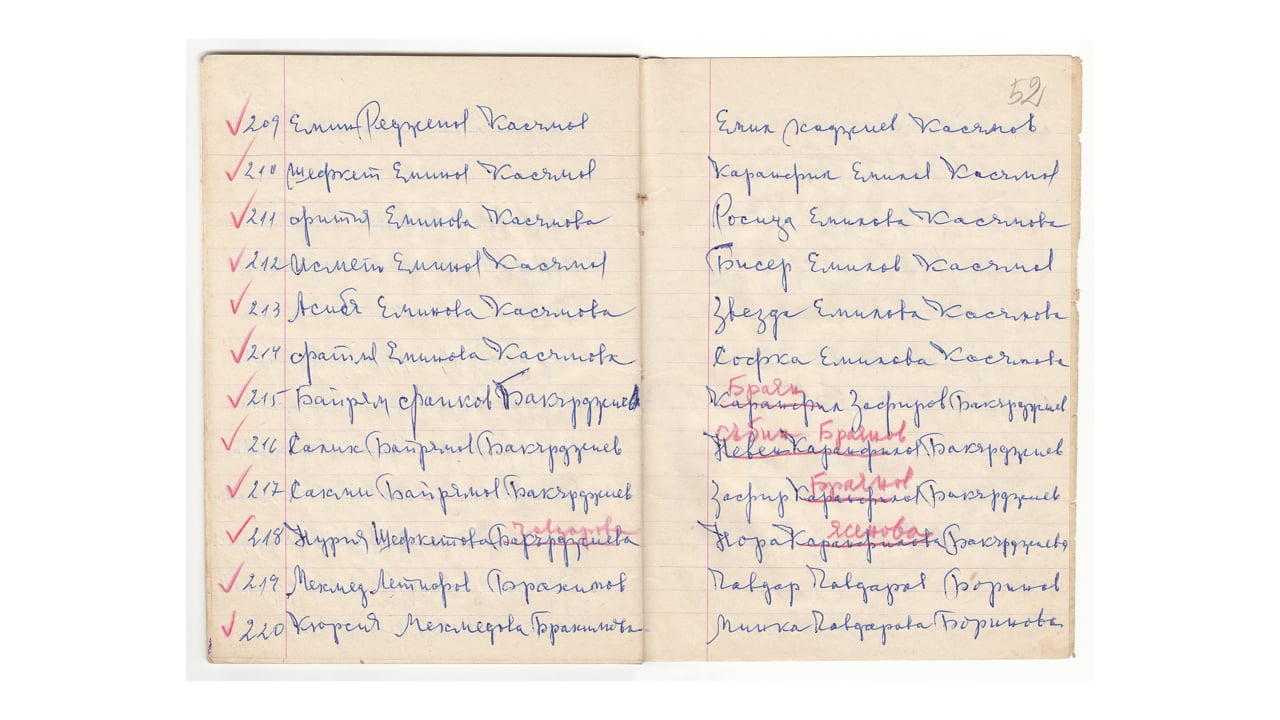 52
209 Емин Реджепов Касъмов Емил Хаджиев Касъмов
210 Шефкет Еминов Касъмов Карамфил Емилов Касъмов
211 Фития Еминова Касъмова Росица Емилова Касъмова
212 Исмет Еминов Касъмов Бисер Емилов Касъмов
213 Асибя Еминова Касъмова Звезда Емилова Касъмова
214 Фатия Еминова Касъмова Софка Емилова Касъмова
Браян
215 Байрям Фаиков Бакърджиев Карамфил Зафиров Бакърджиев
Събин Браянов
216 Салих Байрямов Бакърджиев Невен Карамфилов Бакърджиев
Браянов
217 Сакми Байрямов Бакърджиев Зафир Карамфилов Бакърджиев
Чавдарова Ясенова
218 Нурия Шефкетова Бакърджиева Нора Карамфилова Бакърджиева
219 Мехмед Летифов Брахимов Чавдар Чавдаров Боринов
220 Кюрсия Мехмедова Брахимова Минка Чавдарова Боринова